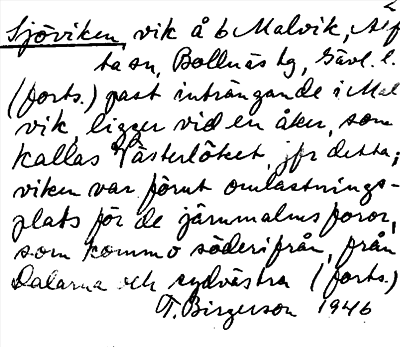 Sjöviken, vik å b Malvik, Alf
ta sn, Bollnäs tg, Gävl. l.
(forts.) past inträngande i Mal
vik, ligger vid en åker, som
kallas Västerlöket, jfr detta;
viken var förut omlastnings-
plats för de järnmalms foror,
som kommo söderifrån, från
Dalarna och sydvästra (forts.)
T. Birgerson 1946